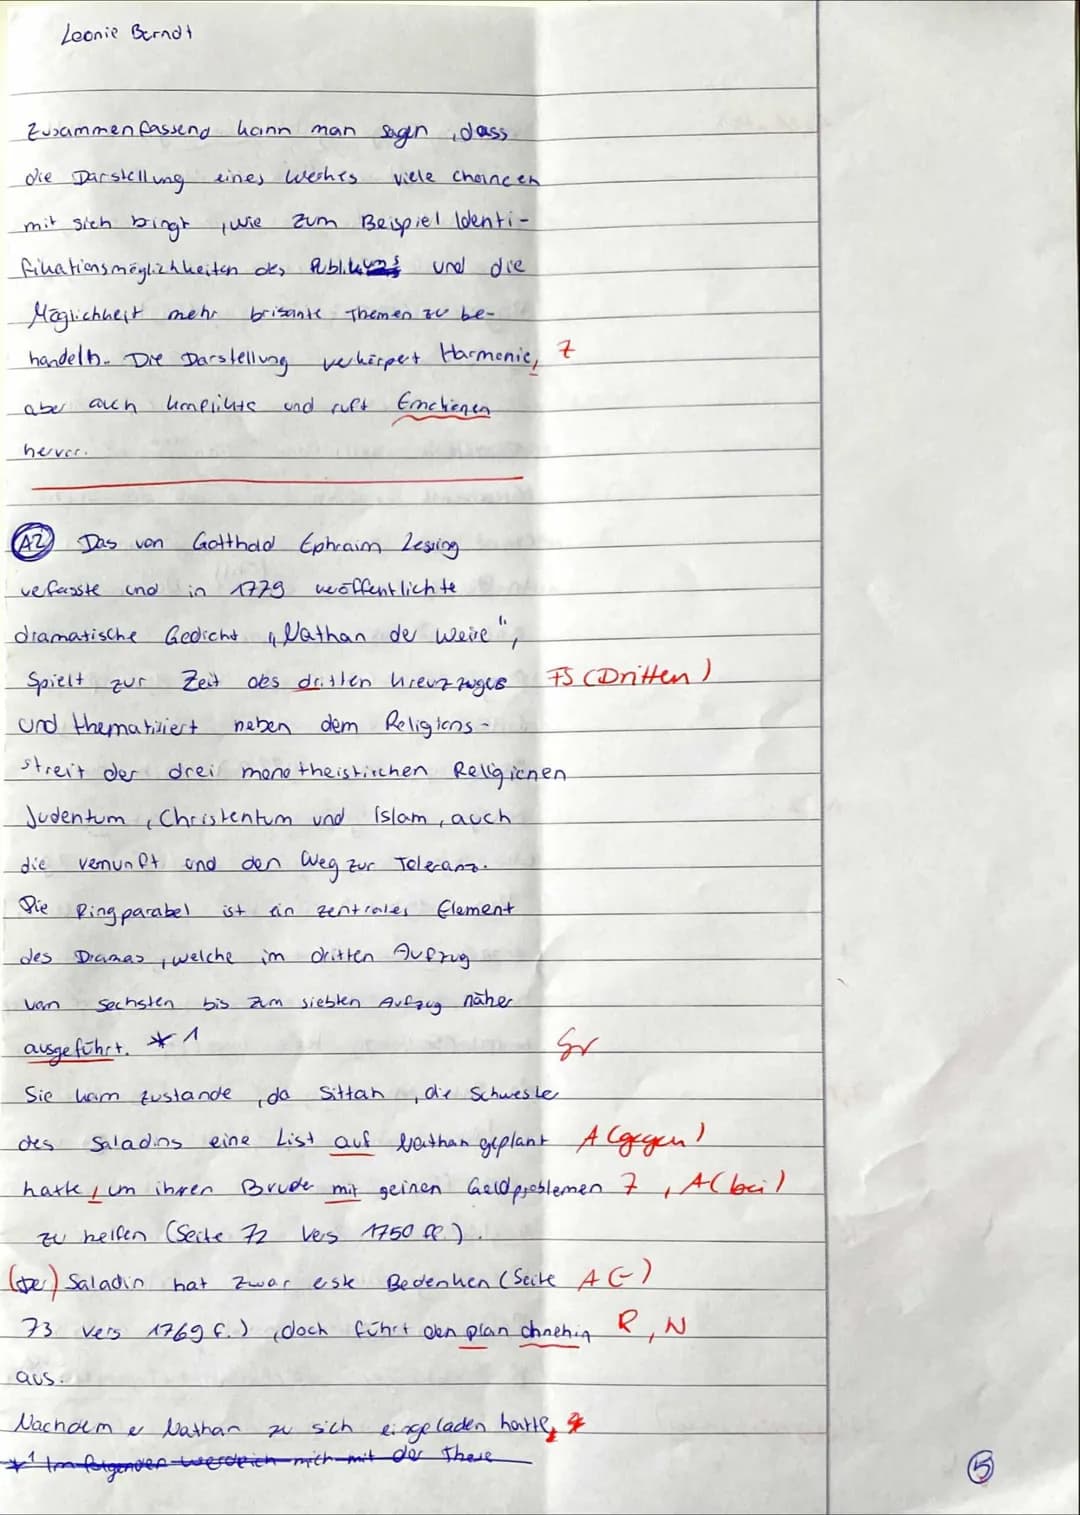 Leonie Berndt
Zusammenfassend kann man sagen, dass
die Darstellung eines Werkes viele Chancen
mit sich bingt, wie zum Beispiel Identi-
fikationsmöglichkeiten des Publikums und die
Möglichkeit mehr brisante Themen zu be-
handeln. Die Darstellung verkörpert Harmonie, Z
aber auch und ruft Emotionen
hervor.
A2 Das von Gotthold Ephraim Lessing
verfasste und in 1779 veröffentlichte
dramatische Gedicht „Nathan der Weise",
Spielt zur Zeit des dritten Kreuzzuges FS (Dritten)
und thematisiert neben dem Religions-
streit der drei monotheistischen Religionen
Judentum, Christentum und Islam, auch
die vernunft und den Weg zur Toleranz.
Die Ringparabel ist ein zentrales Element
des Dramas, welche im dritten Aufzug
vom sechsten bis zum siebten Aufzug näher
ausgeführt. *1 Gr
Sie kam zustande, da Sittah, die Schwester
des Saladins eine List auf Nathan geplant A (gegen)
hatte, um ihren Bruder mit seinen Geldproblemen Z, A (bei)
zu helfen (Seite 72 Vers 1750 ff.).
(Der) Saladin hat zwar erste Bedenken (Seite A (-)
73 Vers 1769 f.), doch führt den plan ohnehin R, N
aus.
Nachdem er Nathan zu sich eingeladen hatte, Z
*1 Im folgenden werde ich mich mit der These
5